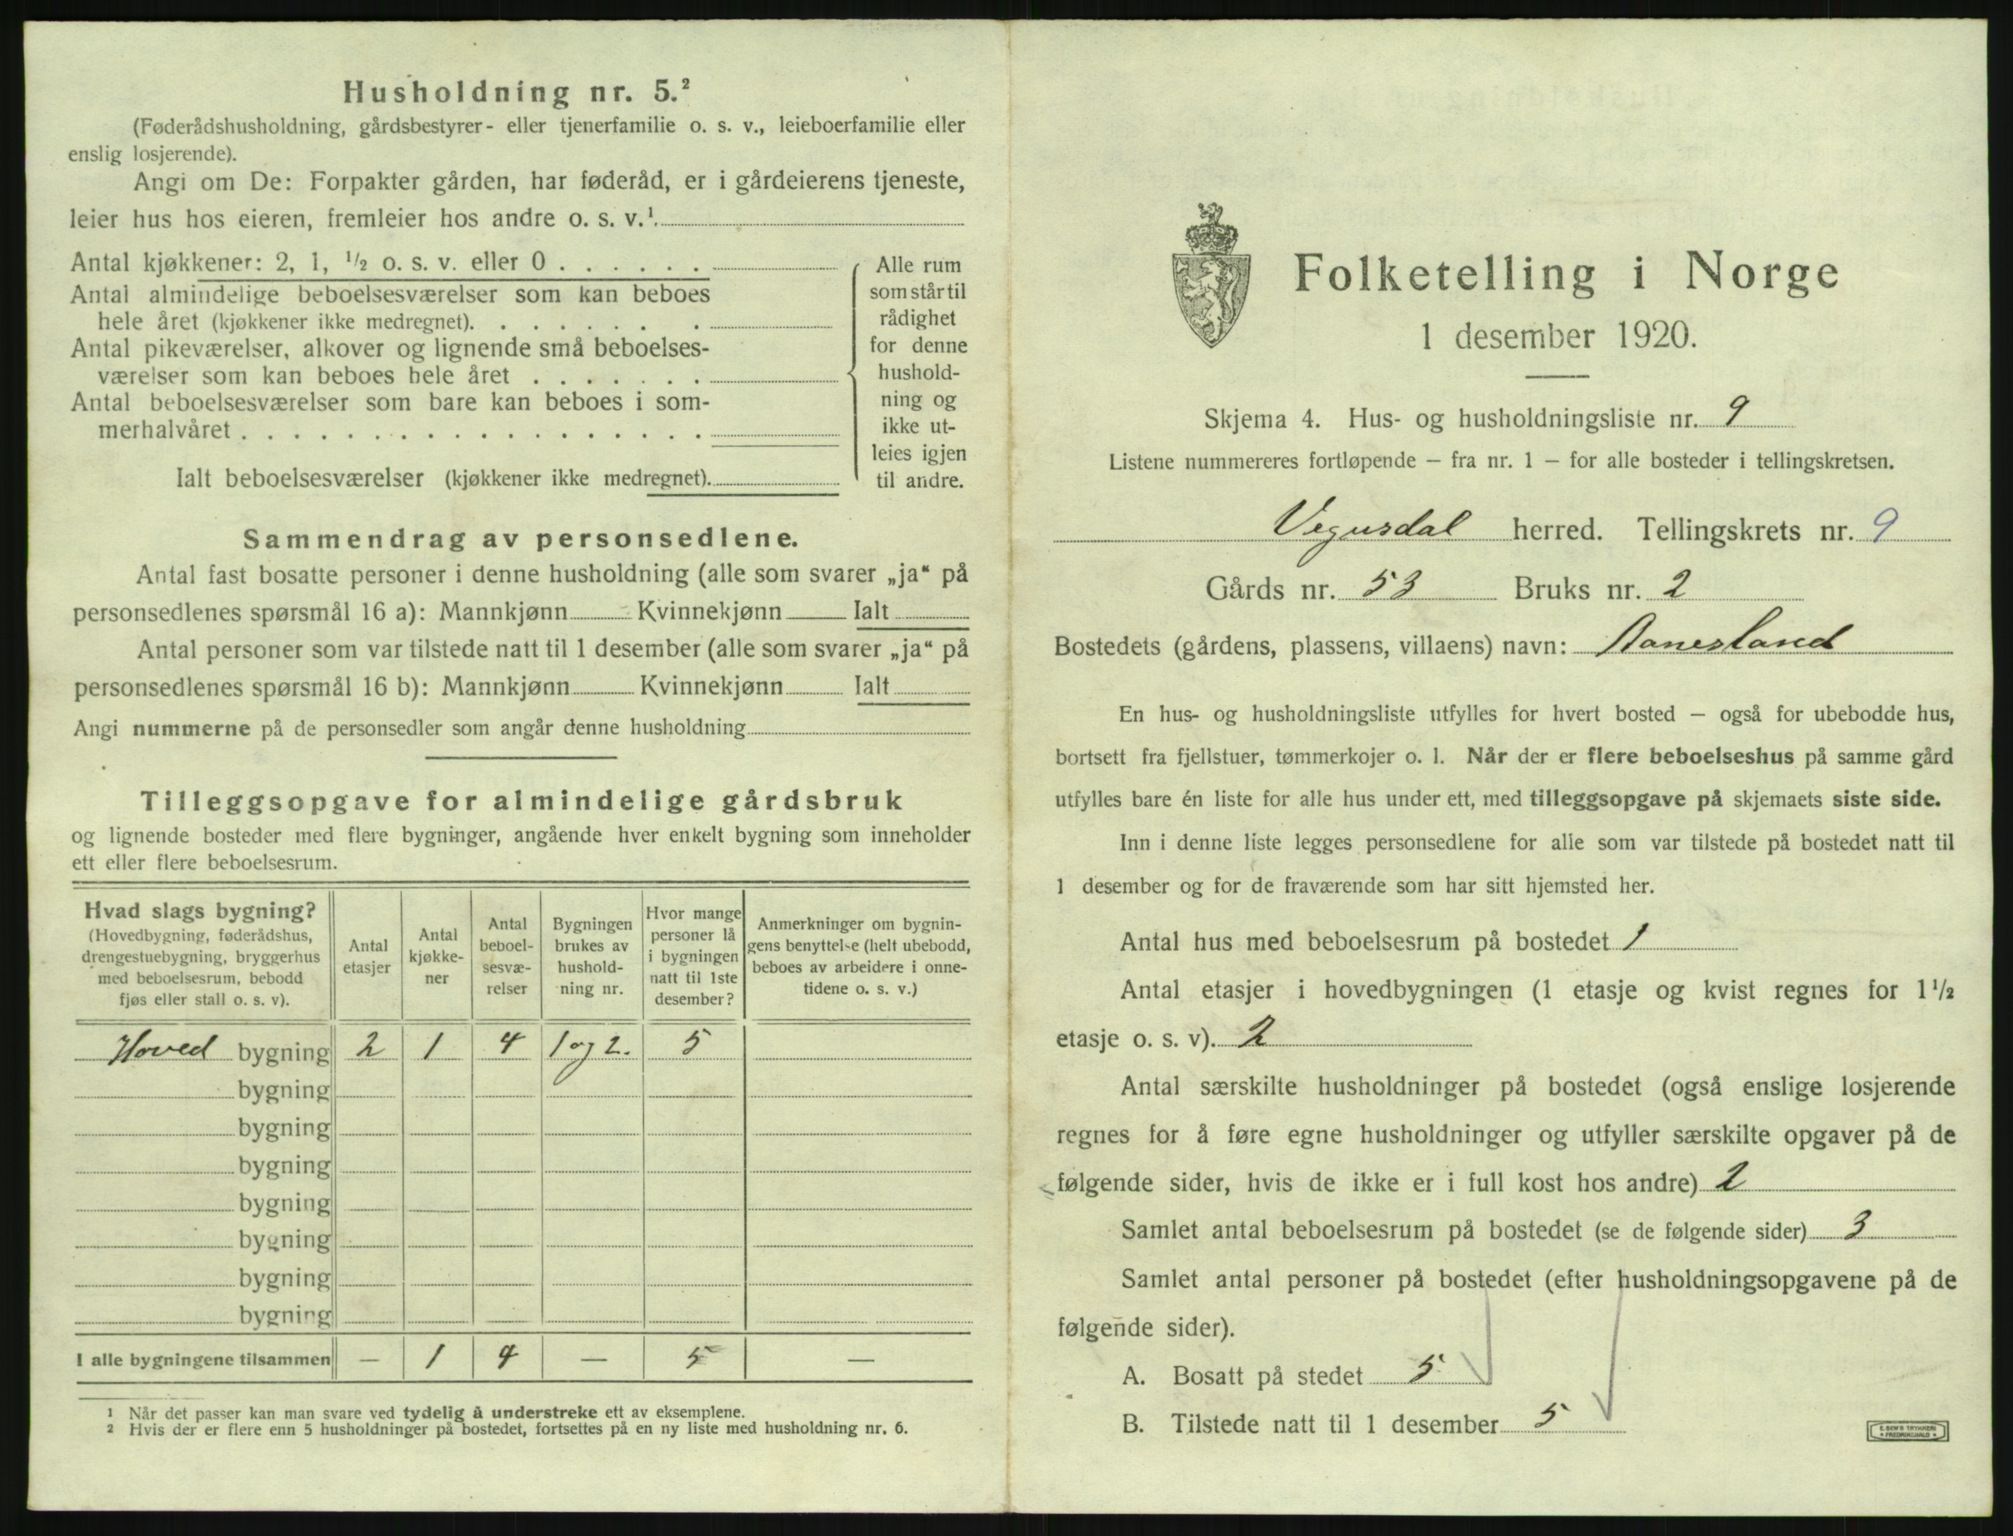 Husholdning nr. 5.²
(Føderådshusholdning, gårdsbestyrer- eller tjenerfamilie o. s. v., leieboerfamilie eller
enslig losjerende).
Angi om De: Forpakter gården, har føderåd, er i gårdeierens tjeneste,
leier hus hos eieren, fremleier hos andre o. s. v.¹
Antal kjøkkener: 2, 1, ½ o. s. v. eller 0
Antal almindelige beboelsesværelser som kan beboes
hele året (kjøkkener ikke medregnet).
Antal pikeværelser, alkover og lignende små beboelses-
værelser som kan beboes hele året
Antal beboelsesværelser som bare kan beboes i som-
merhalvåret
Ialt beboelsesværelser (kjøkkener ikke medregnet).
Alle rum
som står til
rådighet
for denne
hushold-
ning og
ikke ut-
leies igjen
til andre.
Sammendrag av personsedlene.
Antal fast bosatte personer i denne husholdning (alle som svarer „ja“ på
personsedlenes spørsmål 16 a): Mannkjønn Kvinnekjønn Ialt
Antal personer som var tilstede natt til 1 desember (alle som svarer „ja“ på
personsedlenes spørsmål 16 b): Mannkjønn Kvinnekjønn Ialt
Angi nummerne på de personsedler som angår denne husholdning
Tilleggsopgave for almindelige gårdsbruk
og lignende bosteder med flere bygninger, angående hver enkelt bygning som inneholder
ett eller flere beboelsesrum.
Hvad slags bygning?
(Hovedbygning, føderådshus,
drengestuebygning, bryggerhus
med beboelsesrum, bebodd
fjøs eller stall o. s. v).
Antal
etasjer
Antal
kjøkke-
ner
Antal
beboel-
sesvæ-
relser
Bygningen
brukes av
hushold-
ning nr.
Hvor mange
personer lå
i bygningen
natt til 1ste
desember?
Anmerkninger om bygnin-
gens benyttelse (helt ubebodd,
beboes av arbeidere i onne-
tidene o. s. v.)
Hoved bygning 2 1 4 1 og 2. 5
bygning
bygning
bygning
bygning
bygning
bygning
bygning
I alle bygningene tilsammen — 1 4 — 5 —
1 Når det passer kan man svare ved tydelig å understreke ett av eksemplene.
2 Hvis der er flere enn 5 husholdninger på bostedet, fortsettes på en ny liste med husholdning nr. 6.
Folketelling i Norge
1 desember 1920.
Skjema 4. Hus- og husholdningsliste nr. 9
Listene nummereres fortløpende – fra nr. 1 – for alle bosteder i tellingskretsen.
Vegusdal herred. Tellingskrets nr. 9
Gårds nr. 53 Bruks nr. 2
Bostedets (gårdens, plassens, villaens) navn: Aanesland
En hus- og husholdningsliste utfylles for hvert bosted – også for ubebodde hus,
bortsett fra fjellstuer, tømmerkojer o. l. Når der er flere beboelseshus på samme gård
utfylles bare én liste for alle hus under ett, med tilleggsopgave på skjemaets siste side.
Inn i denne liste legges personsedlene for alle som var tilstede på bostedet natt til
1 desember og for de fraværende som har sitt hjemsted her.
Antal hus med beboelsesrum på bostedet 1
Antal etasjer i hovedbygningen (1 etasje og kvist regnes for 1½
etasje o. s. v). 2
Antal særskilte husholdninger på bostedet (også enslige losjerende
regnes for å føre egne husholdninger og utfyller særskilte opgaver på de
følgende sider, hvis de ikke er i full kost hos andre) 2
Samlet antal beboelsesrum på bostedet (se de følgende sider) 3
Samlet antal personer på bostedet (efter husholdningsopgavene på de
følgende sider).
A. Bosatt på stedet 5
B. Tilstede natt til 1 desember 5